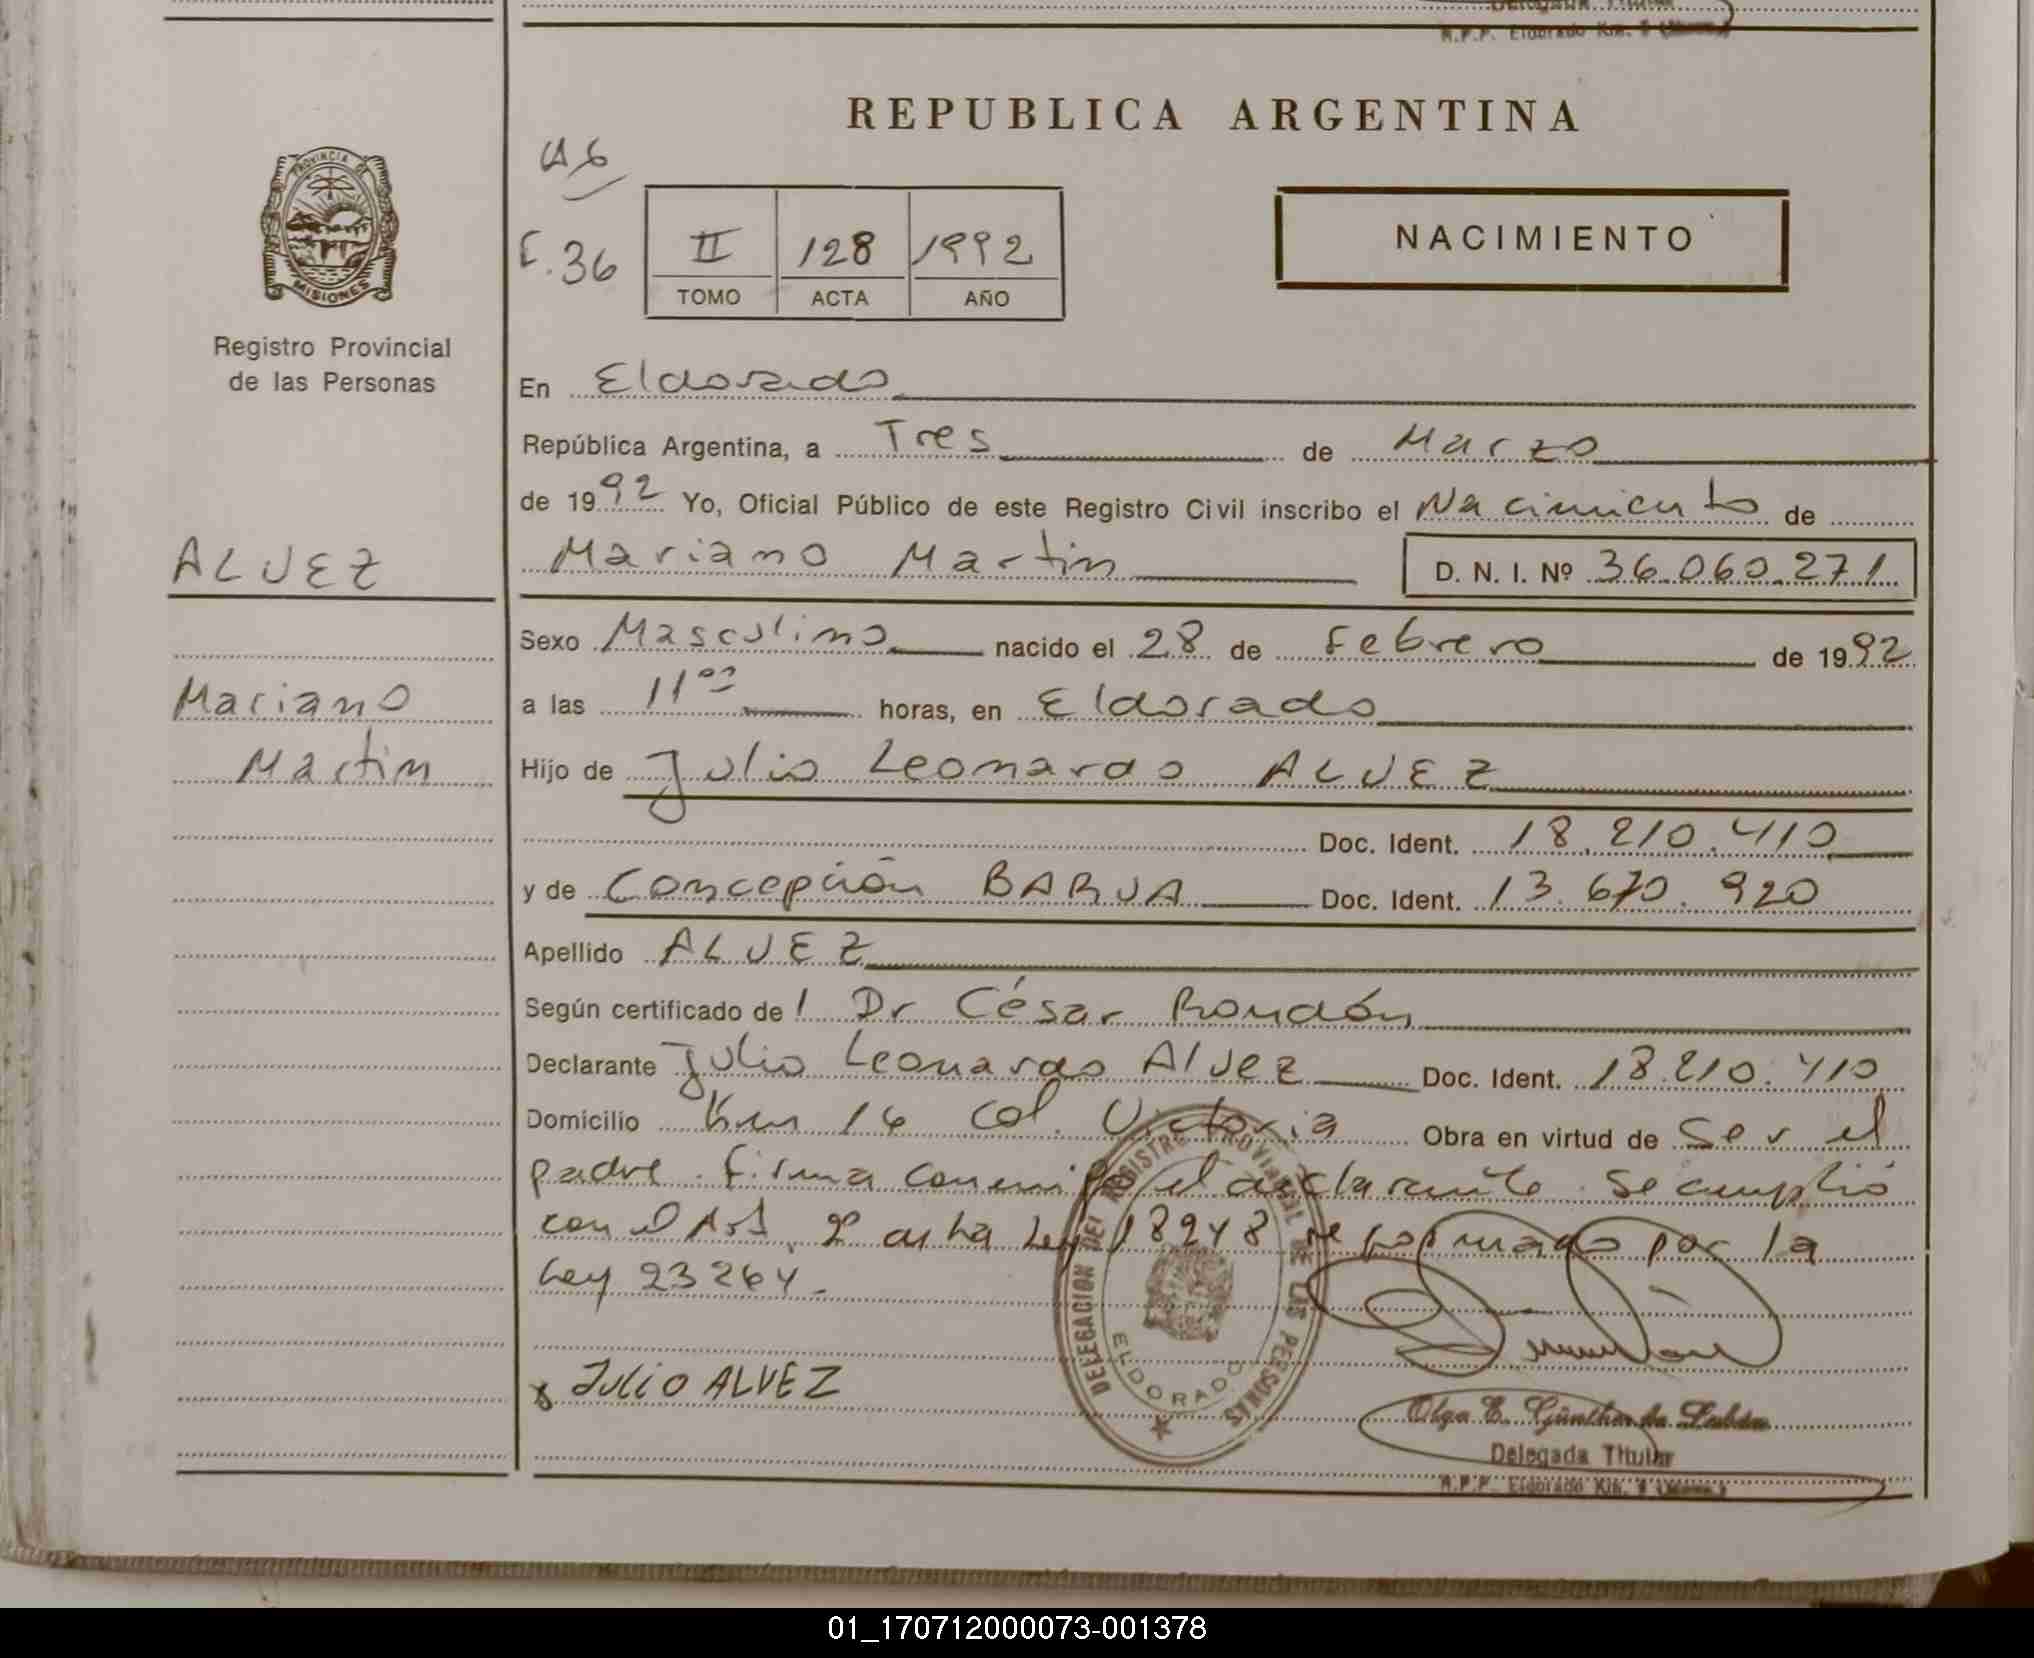 Delegada Titular
R.P.P. Eldorado Km. 9
REPUBLICA ARGENTINA
PROVINCIA DE
MISIONES
Registro Provincial
de las Personas
F.36
II 128 1992
TOMO ACTA AÑO
NACIMIENTO
En Eldorado
República Argentina, a Tres de Marzo
de 1992 Yo, Oficial Público de este Registro Civil inscribo el Nacimiento de
ALVEZ
Mariano Martin D. N. I. Nº 36.060.271
Sexo Masculino nacido el 28 de Febrero de 1992
Mariano
a las 11 00 horas, en Eldorado
Martin
Hijo de Julio Leonardo ALVEZ
Doc. Ident. 18.210.410
y de Concepción BARUA Doc. Ident. 13.670.920
Apellido ALVEZ
Según certificado del Dr César Rondón
Declarante Julio Leonardo Alvez Doc. Ident. 18.210.410
Domicilio Km 14 Col. Victoria Obra en virtud de Ser el
padre. Firma conmigo el declarante. Se cumplió
con el Art. 2º de la Ley 18248 reformado por la
Ley 23264.
JULIO ALVEZ
DELEGACION DEL REGISTRO PROVINCIAL DE LAS PERSONAS
ELDORADO
Olga E. Günther de
Delegada Titular
R.P.P. Eldorado Km. 9
01_170712000073-001378